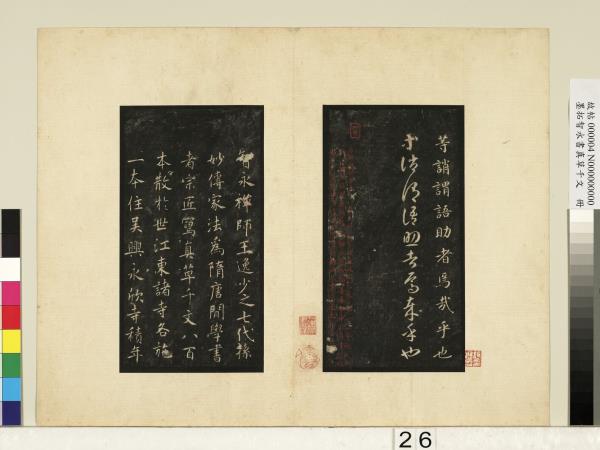 等誚謂語助者焉哉乎也
等誚謂語助者焉哉乎也
智永禪師王逸少之七代孫
妙傳家法為隋唐間學書
者宗匠寫真草千文八百
本散於世江東諸寺各施
一本住吴興永欣寺積年
故帖 000004 N000000000
墨拓智永書真草千文 冊
26